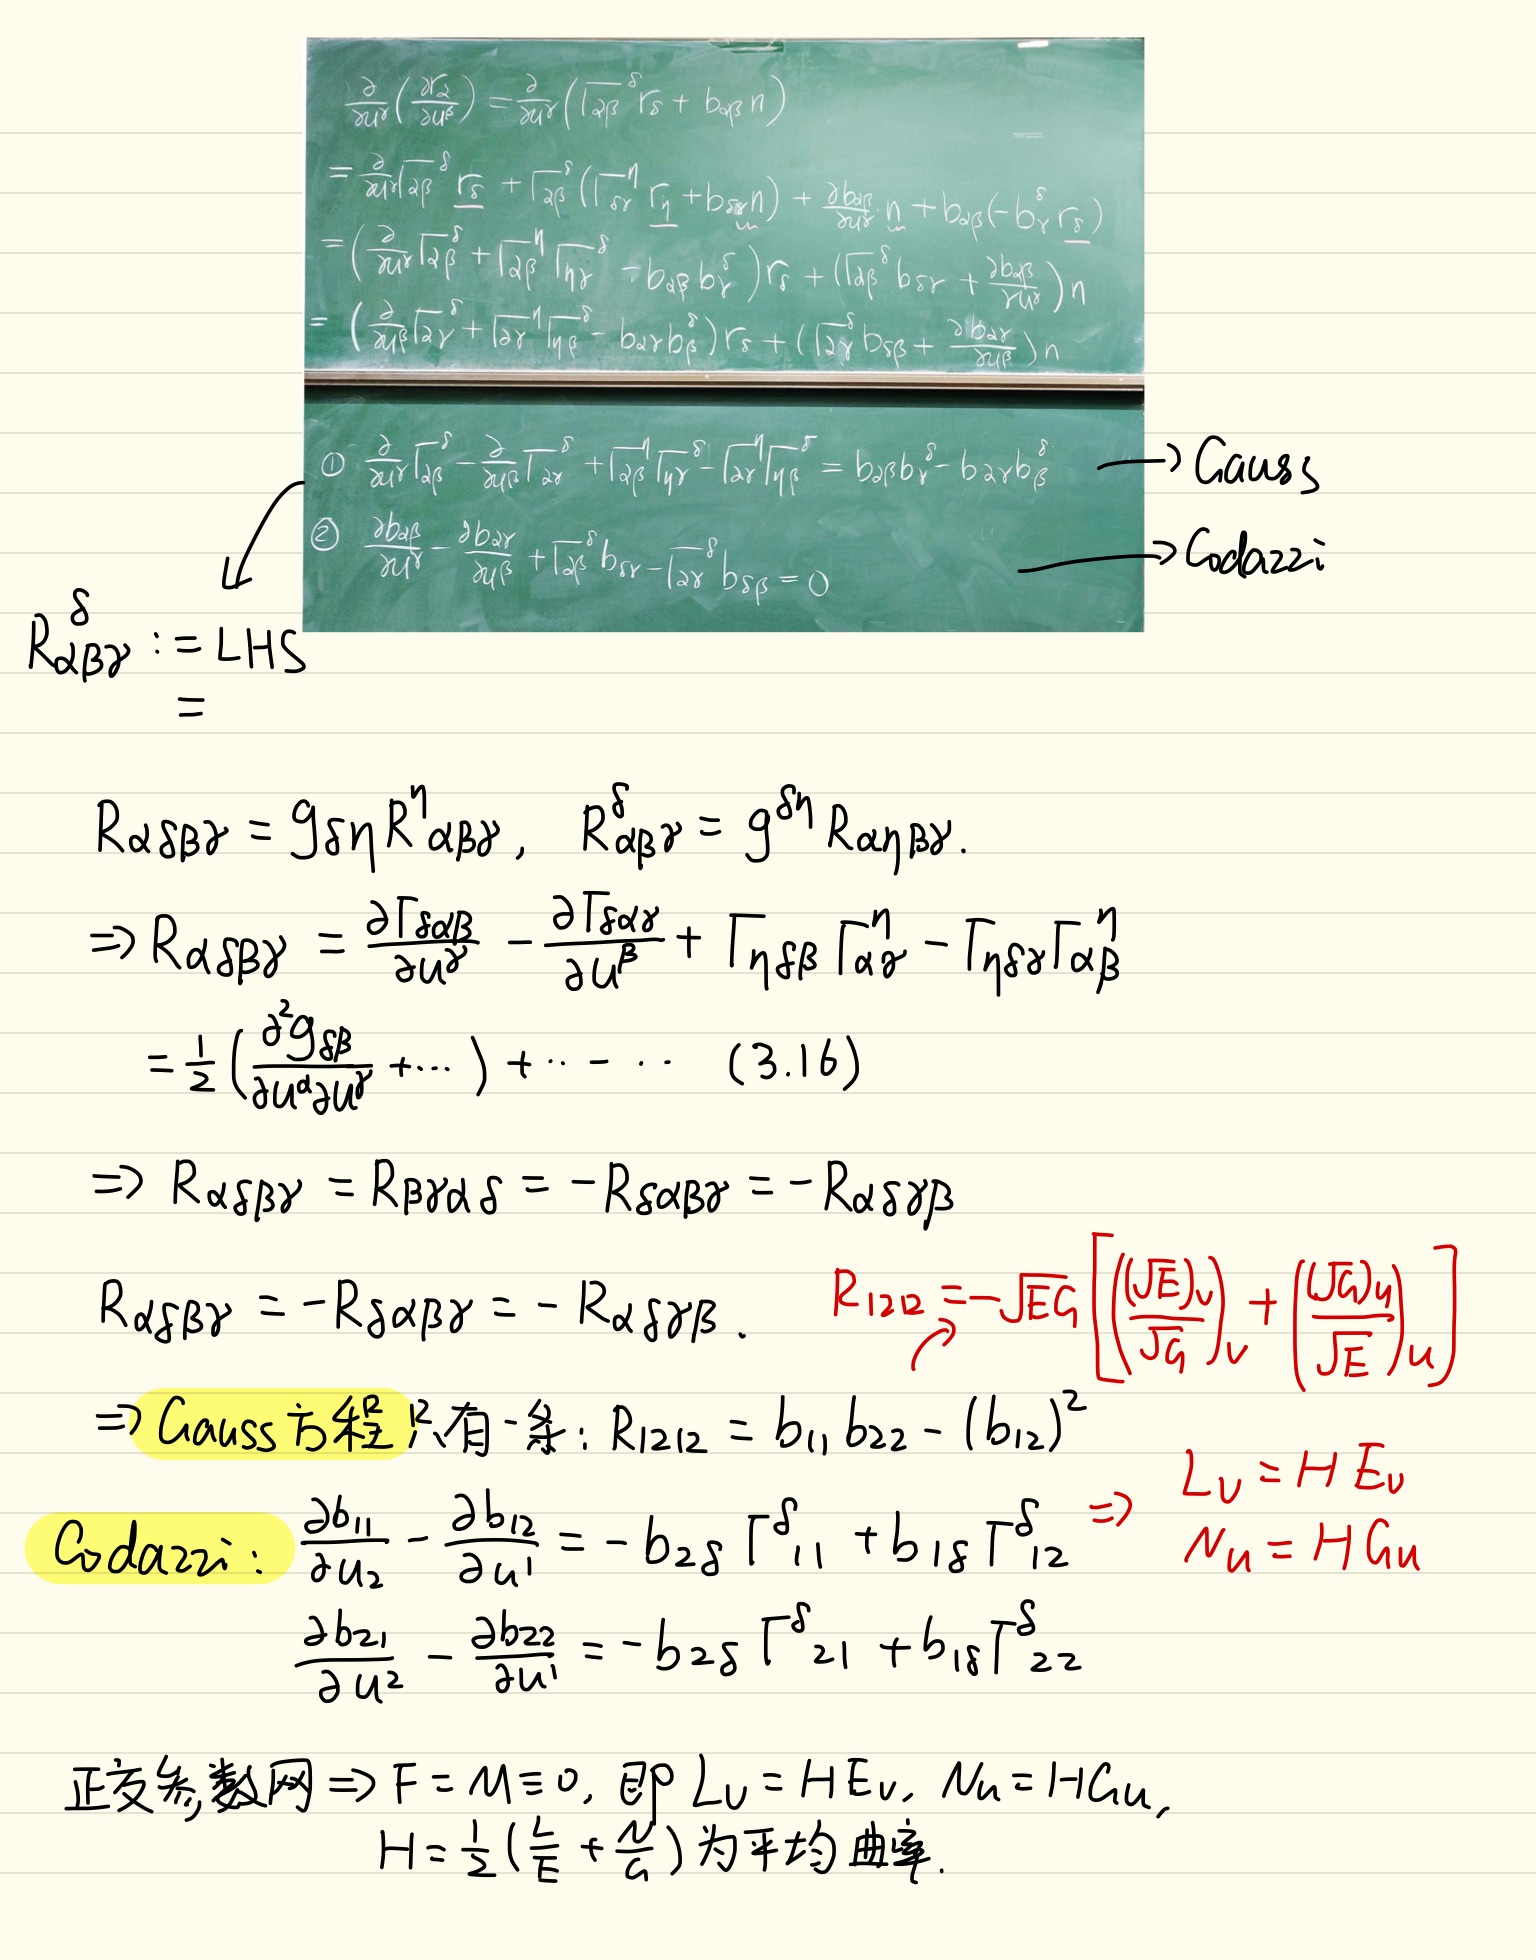 ∂/∂u^γ (∂r_α/∂u^β) = ∂/∂u^γ (Γ_αβ^δ r_δ + b_αβ n)
= ∂/∂u^γ Γ_αβ^δ r_δ + Γ_αβ^δ (Γ_δγ^η r_η + b_δγ n) + ∂b_αβ/∂u^γ n + b_αβ (-b_γ^δ r_δ)
= (∂/∂u^γ Γ_αβ^δ + Γ_αβ^η Γ_ηγ^δ - b_αβ b_γ^δ) r_δ + (Γ_αβ^δ b_δγ + ∂b_αβ/∂u^γ) n
= (∂/∂u^β Γ_αγ^δ + Γ_αγ^η Γ_ηβ^δ - b_αγ b_β^δ) r_δ + (Γ_αγ^δ b_δβ + ∂b_αγ/∂u^β) n
① ∂/∂u^γ Γ_αβ^δ - ∂/∂u^β Γ_αγ^δ + Γ_αβ^η Γ_ηγ^δ - Γ_αγ^η Γ_ηβ^δ = b_αβ b_γ^δ - b_αγ b_β^δ → Gauss
② ∂b_αβ/∂u^γ - ∂b_αγ/∂u^β + Γ_αβ^δ b_δγ - Γ_αγ^δ b_δβ = 0 → Codazzi
R_αβγ^δ := LHS
=
R_αδβγ = g_δη R^η_αβγ, R^δ_αβγ = g^δη R_αηβγ.
⇒ R_αδβγ = ∂Γ_δαβ/∂u^γ - ∂Γ_δαγ/∂u^β + Γ_ηδβ Γ_αγ^η - Γ_ηδγ Γ_αβ^η
= 1/2 (∂²g_δβ/∂u^α∂u^γ + ...) + ·· - ·· (3.16)
⇒ R_αδβγ = R_βγαδ = -R_δαβγ = -R_αδγβ
R_αδβγ = -R_δαβγ = -R_αδγβ.
R_1212 = -√EG [((√E)_v/√G)_v + ((√G)_u/√E)_u]
⇒ Gauss方程只有一条: R_1212 = b_11 b_22 - (b_12)²
Codazzi: ∂b_11/∂u_2 - ∂b_12/∂u^1 = -b_2δ Γ^δ_11 + b_1δ Γ^δ_12
∂b_21/∂u^2 - ∂b_22/∂u^1 = -b_2δ Γ^δ_21 + b_1δ Γ^δ_22
⇒ L_v = H E_v
N_u = H G_u
正交参数网 ⇒ F = M ≡ 0, 即 L_v = H E_v, N_u = H G_u,
H = 1/2 (L/E + N/G) 为平均曲率.